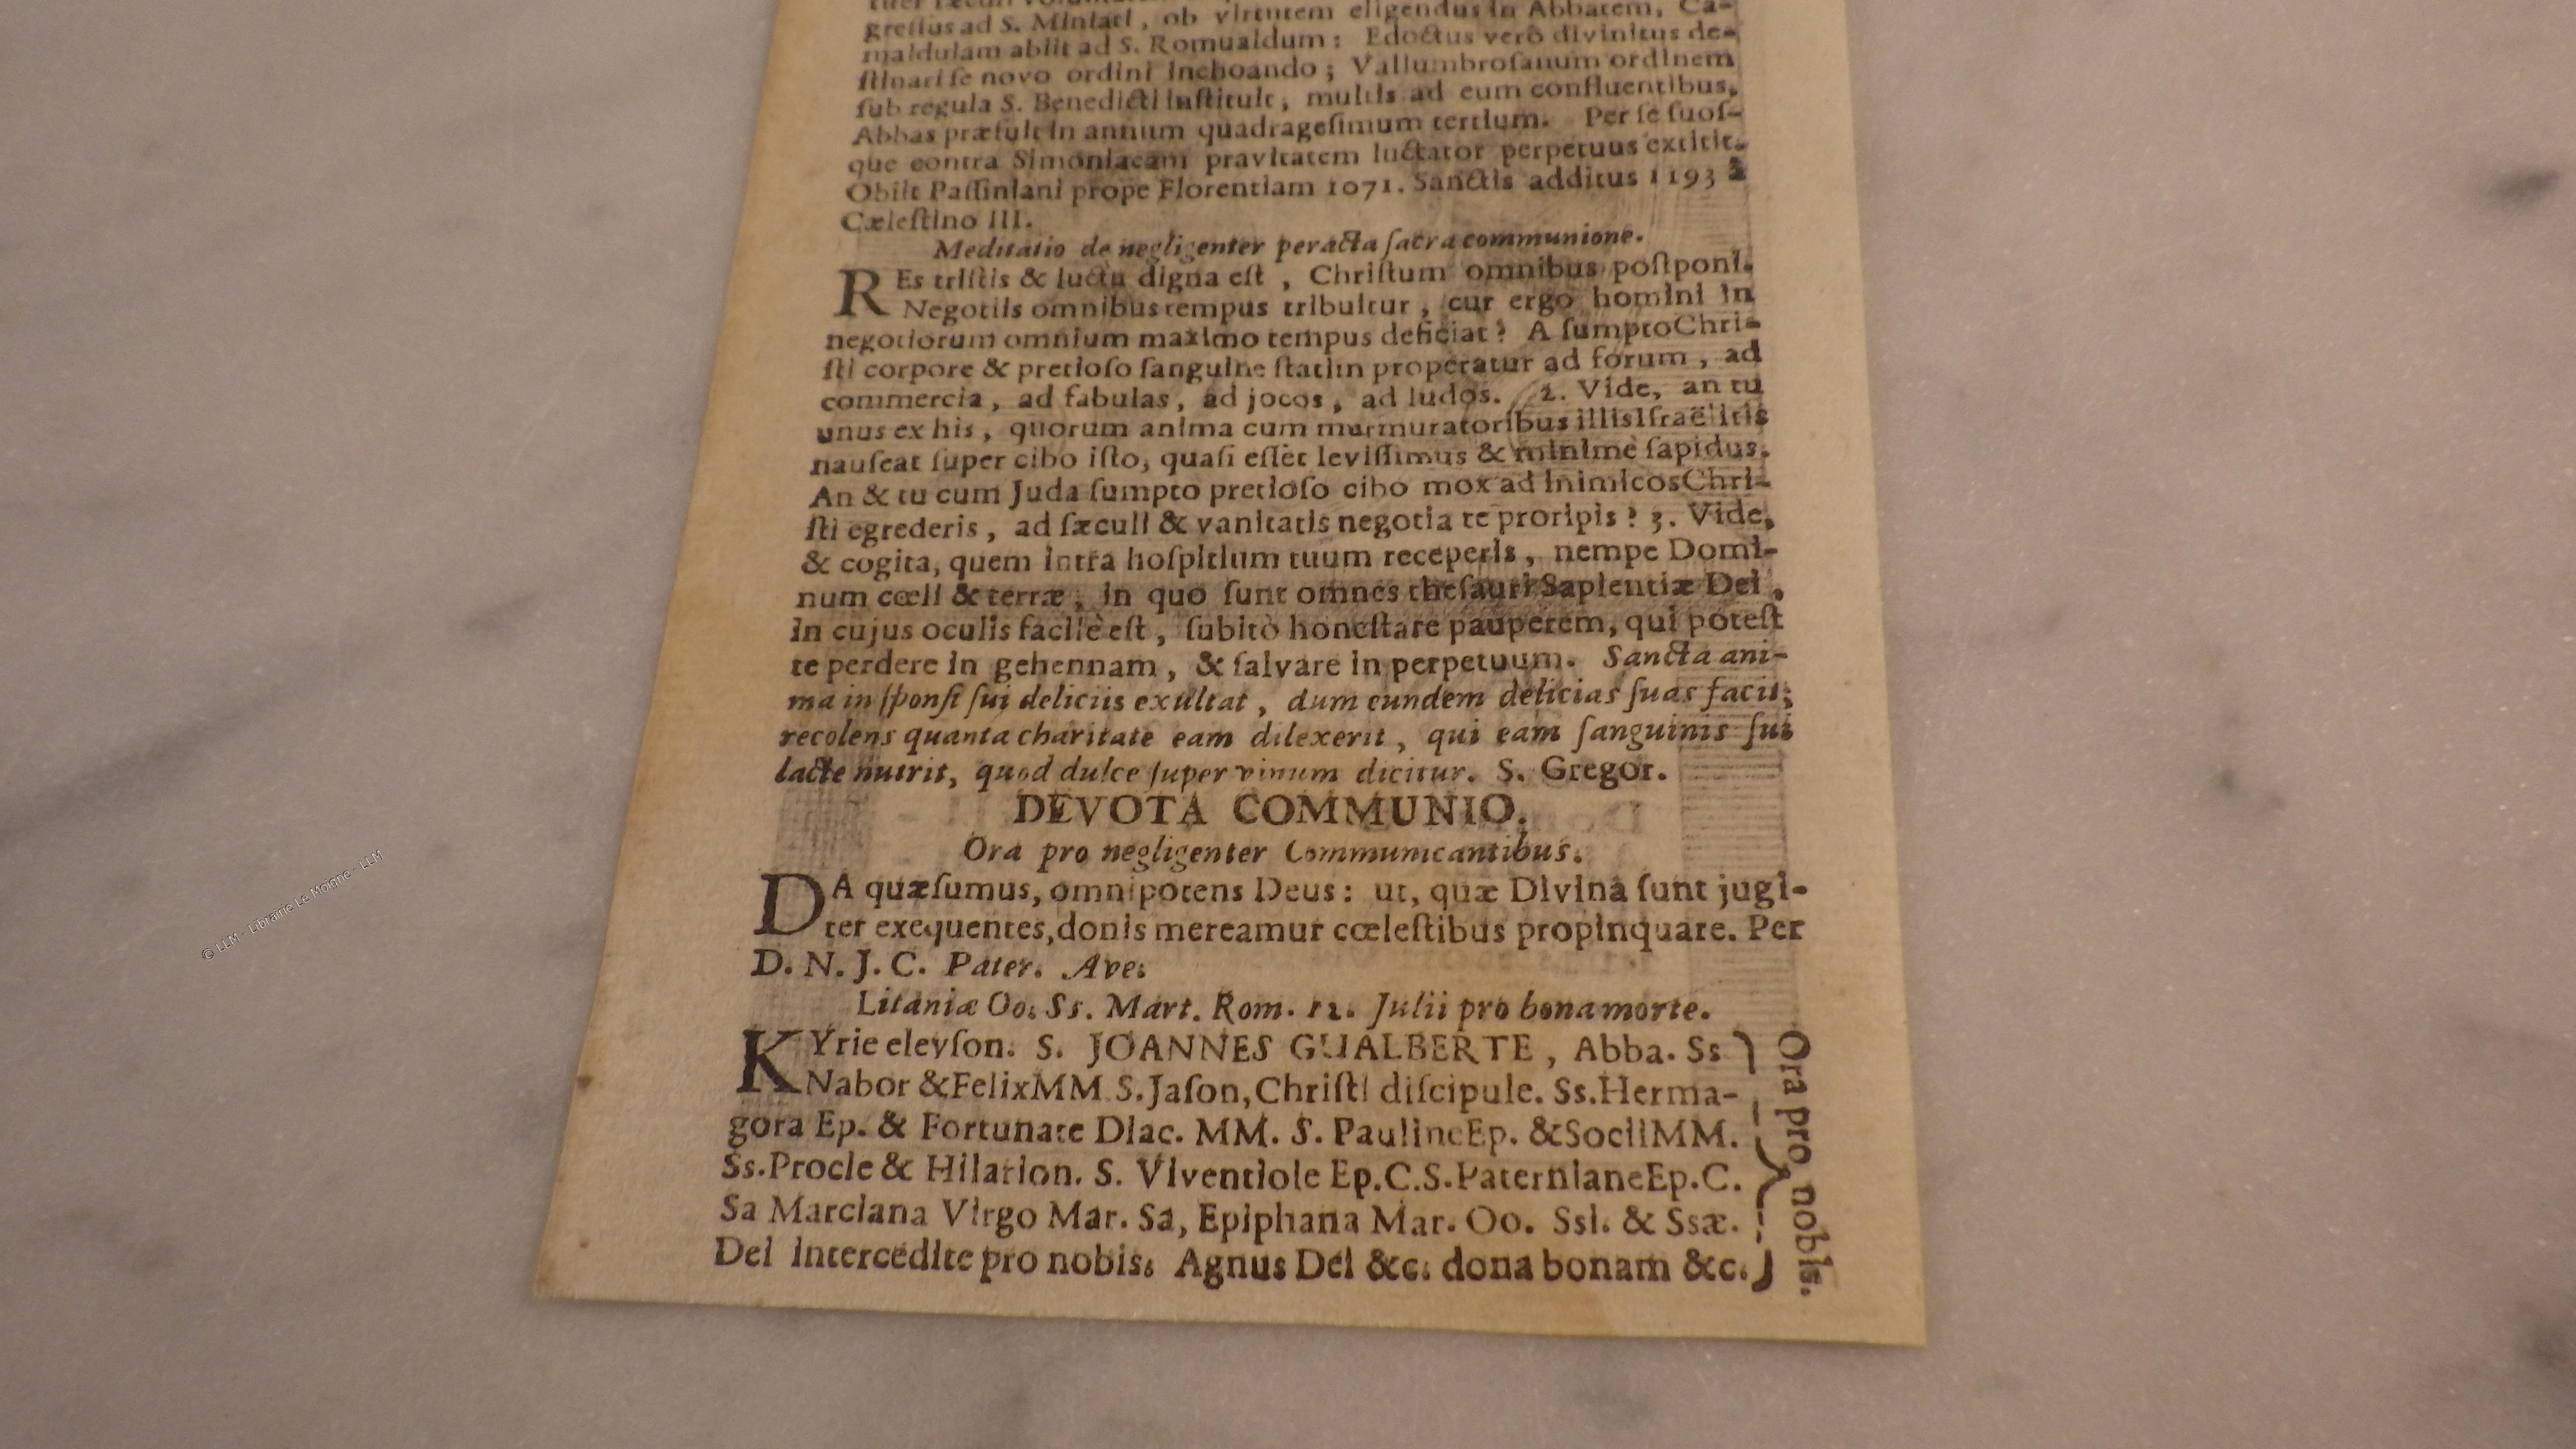 gressus ad S. Miniati, ob virtutem eligendus in Abbatem, Ca-
maldulam abiit ad S. Romualdum: Edoctus verò divinitus de-
ſtinari ſe novo ordini inchoando; Vallumbroſanum ordinem
ſub regula S. Benedicti inſtituit, multis ad eum confluentibus,
Abbas præfuit in annum quadrageſimum tertium. Per ſe ſuoſ-
que contra Simoniacam pravitatem luctator perpetuus extitit.
Obiit Paſſiniani prope Florentiam 1071. Sanctis additus 1193 à
Cæleſtino III.
Meditatio de negligenter peracta ſacra communione.
REs triſtis & luctu digna eſt, Chriſtum omnibus poſtponi.
Negotiis omnibus tempus tribuitur, cur ergo homini in
negotiorum omnium maximo tempus deficiat? A ſumpto Chri-
ſti corpore & pretioſo ſanguine ſtatim properatur ad forum, ad
commercia, ad fabulas, ad jocos, ad ludos. 2. Vide, an tu
unus ex his, quorum anima cum murmuratoribus illis Iſraëlitis
nauſeat ſuper cibo iſto, quaſi eſſet leviſſimus & minimè ſapidus.
An & tu cum Juda ſumpto pretioſo cibo mox ad inimicos Chri-
ſti egrederis, ad ſæculi & vanitatis negotia te proripis? 3. Vide,
& cogita, quem intra hoſpitium tuum receperis, nempe Domi-
num cœli & terræ, in quo ſunt omnes theſauri Sapientiæ Dei,
in cujus oculis facilè eſt, ſubitò honeſtare pauperem, qui poteſt
te perdere in gehennam, & ſalvare in perpetuum. Sancta ani-
ma in ſponſi ſui deliciis exultat, dum eundem delicias ſuas facit;
recolens quanta charitate eam dilexerit, qui eam ſanguinis ſui
lacte nutrit, quod dulce ſuper vinum dicitur. S. Gregor.
DEVOTA COMMUNIO.
Ora pro negligenter Communicantibus.
DA quæſumus, omnipotens Deus: ut, quæ Divina ſunt jugi-
ter exequentes, donis mereamur cœleſtibus propinquare. Per
D. N. J. C. Pater. Ave.
Litaniæ Oo. Ss. Mart. Rom. 12. Julii pro bona morte.
KYrie eleyſon. S. JOANNES GUALBERTE, Abba. Ss
Nabor & Felix MM. S. Jaſon, Chriſti diſcipule. Ss. Herma-
gora Ep. & Fortunate Diac. MM. S. Pauline Ep. & Socii MM.
Ss. Procle & Hilarion. S. Viventiole Ep. C. S. Paterniane Ep. C.
Sa Marciana Virgo Mar. Sa, Epiphana Mar. Oo. Ssi. & Ssæ.
Dei intercedite pro nobis. Agnus Dei &c. dona bonam &c.
Ora pro nobis.
© LLM - Librairie Le Moigne - LLM